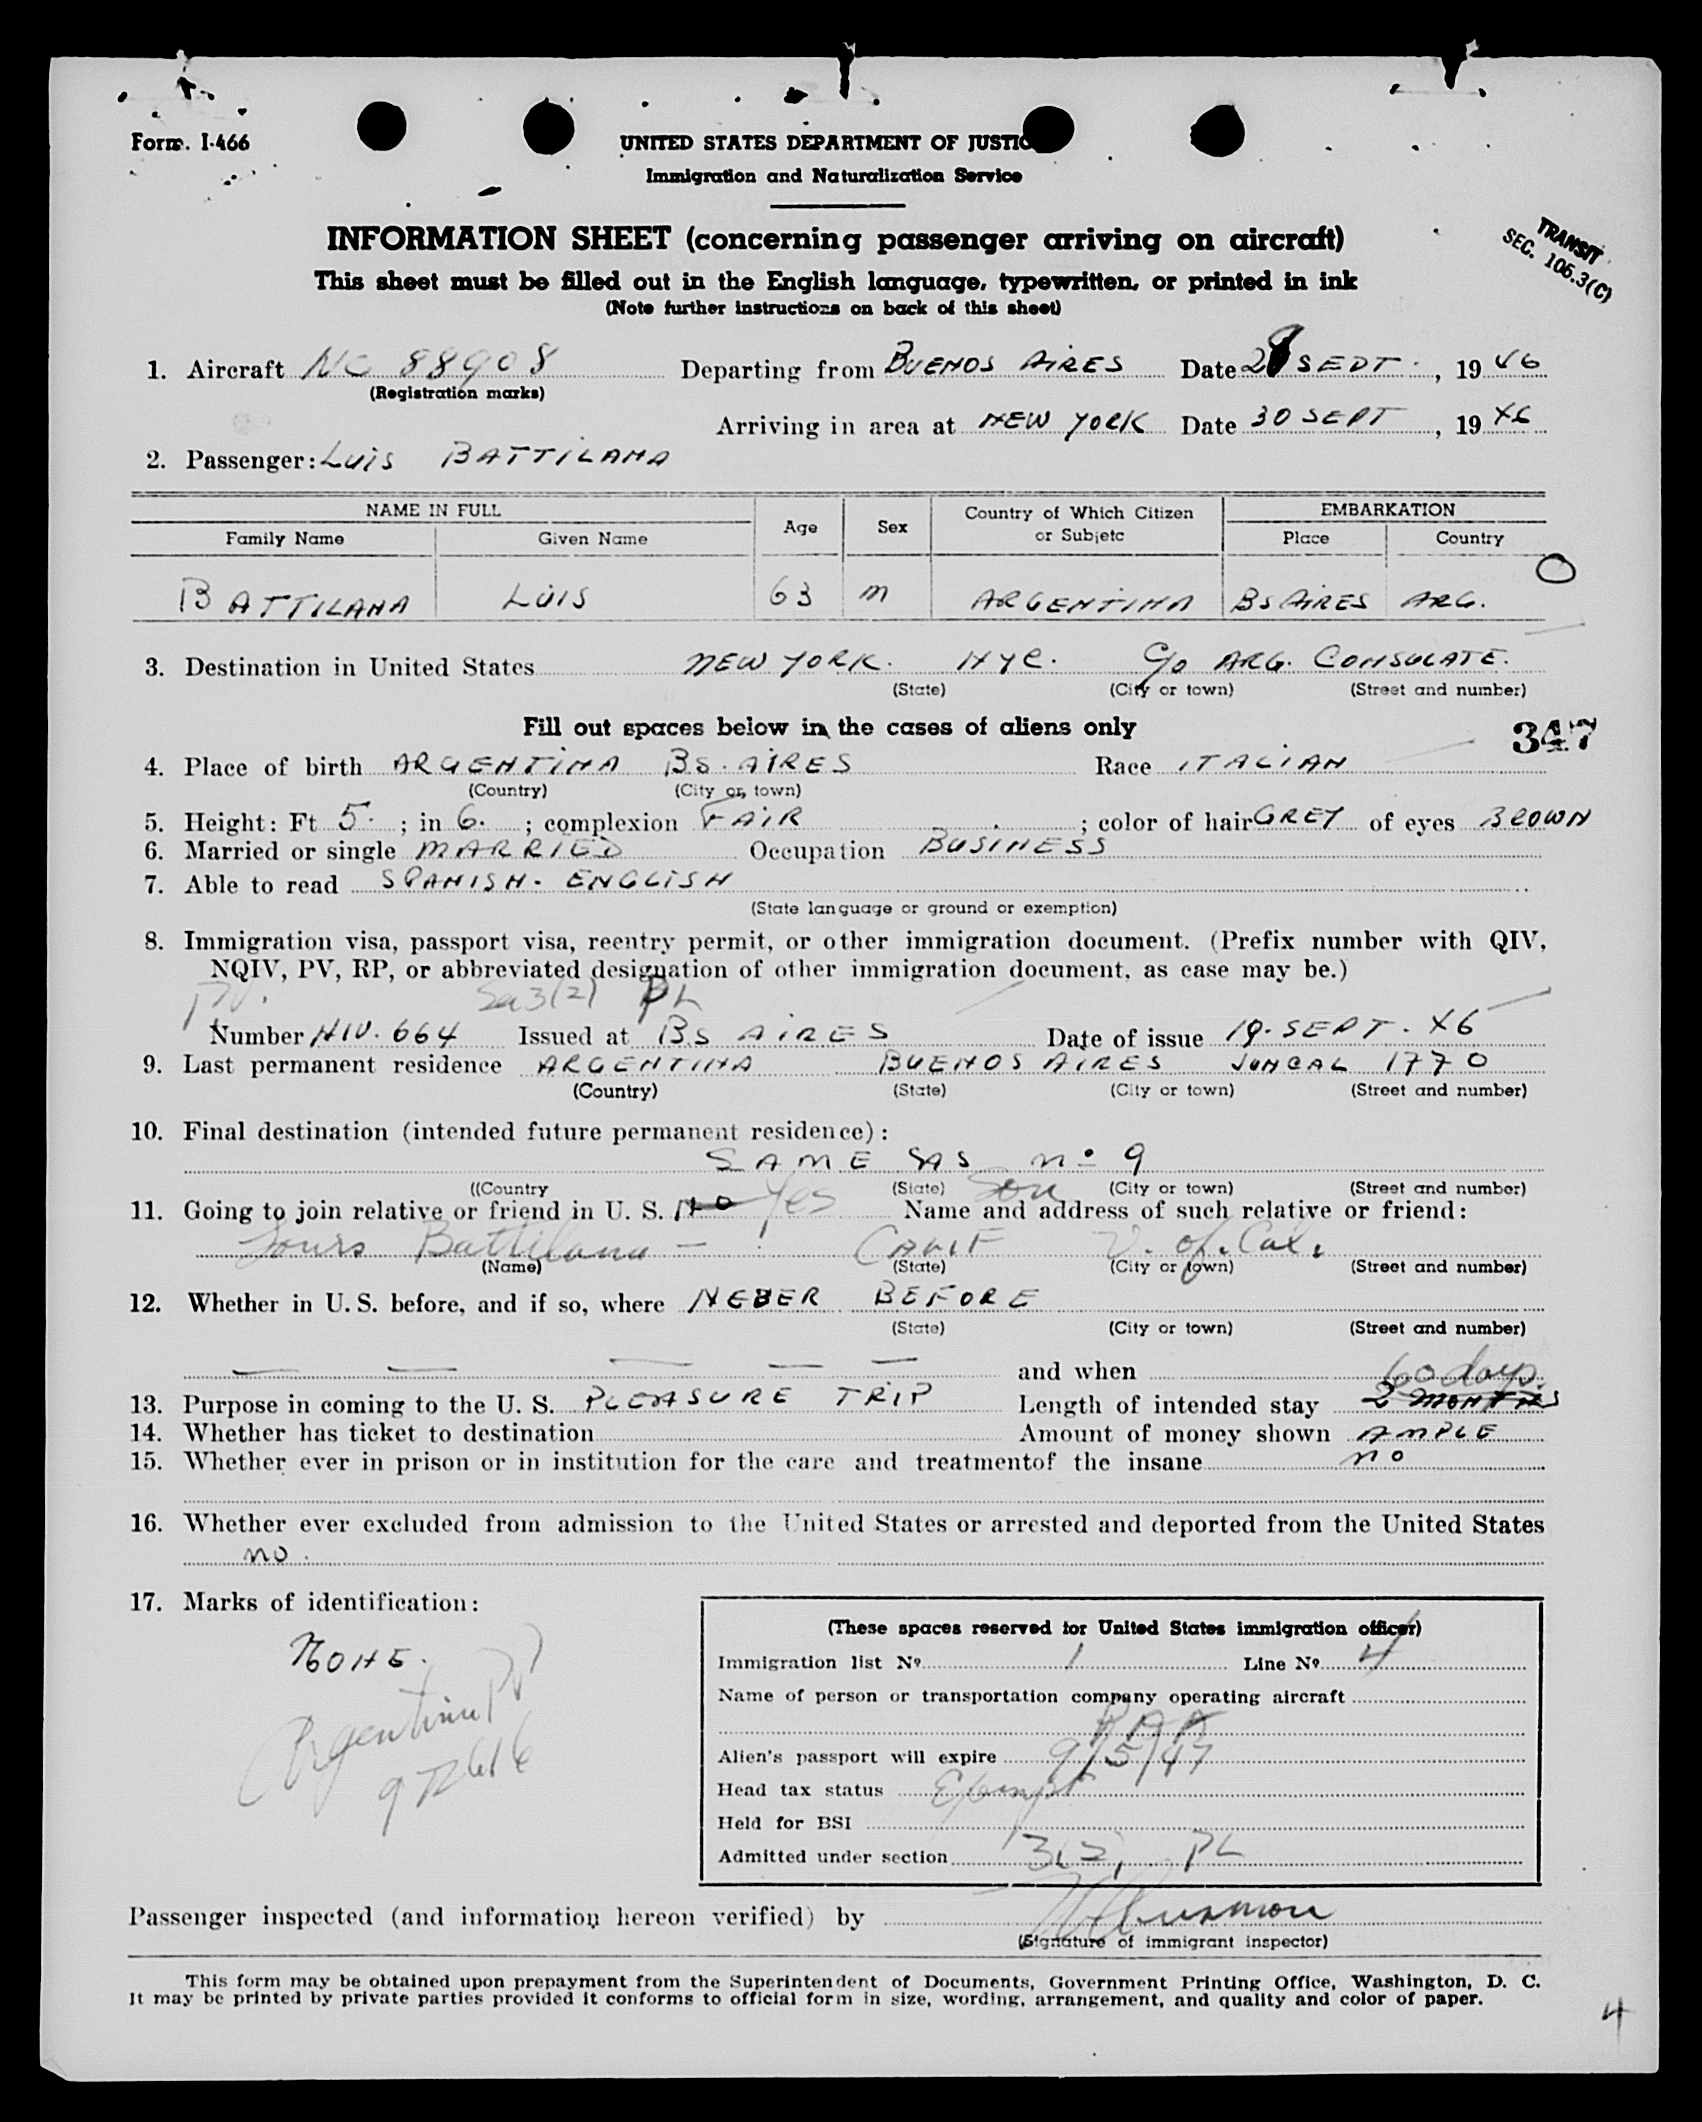 Form. I-466
UNITED STATES DEPARTMENT OF JUSTIC
Immigration and Naturalization Service
INFORMATION SHEET (concerning passenger arriving on aircraft)
TRANSIT
SEC. 105.3(C)
This sheet must be filled out in the English language, typewritten, or printed in ink
(Note further instructions on back of this sheet)
1. Aircraft NC 88908 Departing from BUENOS AIRES Date 28 SEPT., 19 46
(Registration marks)
Arriving in area at NEW YORK Date 30 SEPT, 19 46
2. Passenger: LUIS BATTILANA
NAME IN FULL Age Sex Country of Which Citizen or Subjetc EMBARKATION
Family Name Given Name Place Country
BATTILANA LUIS 63 M ARGENTINA BS AIRES ARG. O
3. Destination in United States NEW YORK. NYC. C/o ARG. CONSULATE.
(State) (City or town) (Street and number)
Fill out spaces below in the cases of aliens only
347
4. Place of birth ARGENTINA BS. AIRES Race ITALIAN
(Country) (City or town)
5. Height: Ft 5. ; in 6. ; complexion FAIR ; color of hair GREY of eyes BROWN
6. Married or single MARRIED Occupation BUSINESS
7. Able to read SPANISH. ENGLISH
(State language or ground or exemption)
8. Immigration visa, passport visa, reentry permit, or other immigration document. (Prefix number with QIV,
NQIV, PV, RP, or abbreviated designation of other immigration document, as case may be.)
PV. Sec 3(2) PL
Number NIV. 664 Issued at BS AIRES Date of issue 19. SEPT. 46
9. Last permanent residence ARGENTINA BUENOS AIRES JUNCAL 1770
(Country) (State) (City or town) (Street and number)
10. Final destination (intended future permanent residence):
SAME AS Nº 9
((Country (State) (City or town) (Street and number)
Son
11. Going to join relative or friend in U. S. NO Yes Name and address of such relative or friend:
Battilana - CALIF U. of. Cal.
(Name) (State) (City or town) (Street and number)
12. Whether in U. S. before, and if so, where NEBER BEFORE
(State) (City or town) (Street and number)
— — — — — and when
60 days
13. Purpose in coming to the U. S. PLEASURE TRIP Length of intended stay 2 MONTHS
14. Whether has ticket to destination Amount of money shown AMPLE
15. Whether ever in prison or in institution for the care and treatmentof the insane NO
16. Whether ever excluded from admission to the United States or arrested and deported from the United States
NO.
17. Marks of identification:
NONE.
Argentine PP
(These spaces reserved for United States immigration officer)
Immigration list Nº 1 Line Nº 4
Name of person or transportation company operating aircraft
PAA
Alien's passport will expire 9/5/47
Head tax status Exempt
Held for BSI
Admitted under section 3(2) PL
Passenger inspected (and information hereon verified) by
(Signature of immigrant inspector)
This form may be obtained upon prepayment from the Superintendent of Documents, Government Printing Office, Washington, D. C.
It may be printed by private parties provided it conforms to official form in size, wording, arrangement, and quality and color of paper.
4